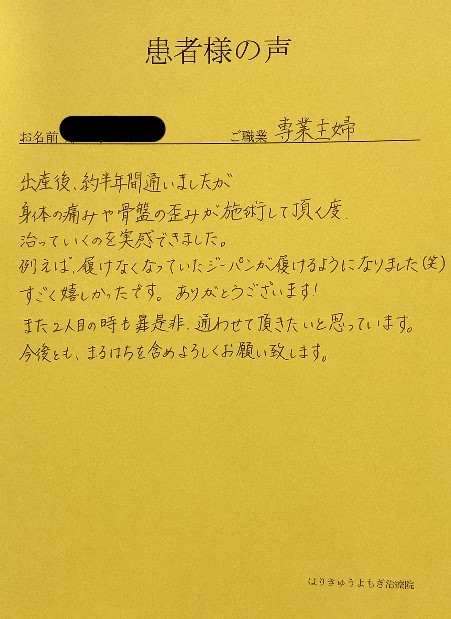 患者様の声
お名前 ご職業 専業主婦
出産後、約半年間通いましたが
身体の痛みや骨盤の歪みが施術して頂く度、
治っていくのを実感できました。
例えば、履けなくなっていたジーパンが履けるようになりました(笑)
すごく嬉しかったです。ありがとうございます!
また2人目の時も是非、通わせて頂きたいと思っています。
今後とも、まるはちを含めよろしくお願い致します。
はりきゅうよもぎ治療院